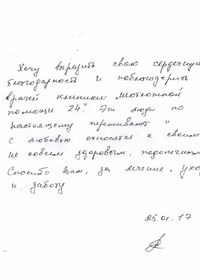 Хочу выразить свою сердечную
благодарность и поблагодарить
врачей клиники „Неотложной
помощи 24." Эти люди по
настоящему переживают и
с любовью относятся к своим
не совсем здоровым, подопечным
Спасибо вам, за лечение, уход
и заботу
05.01.17